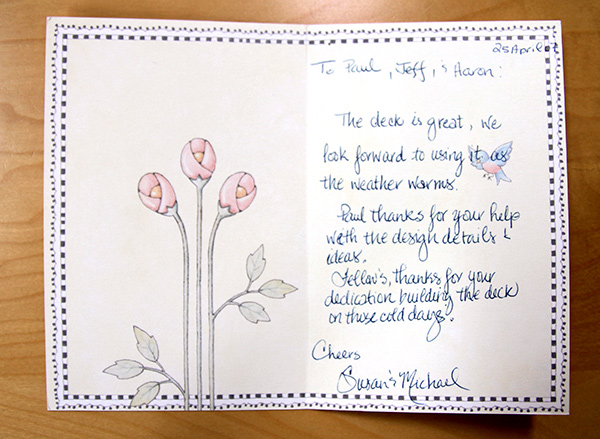 25 April 07
To Paul, Jeff, & Aaron:
The deck is great, we
look forward to using it as
the weather warms.
Paul thanks for your help
with the design details &
ideas.
Fellow's, thanks for your
dedication building the deck
on those cold days!
Cheers
Susan & Michael